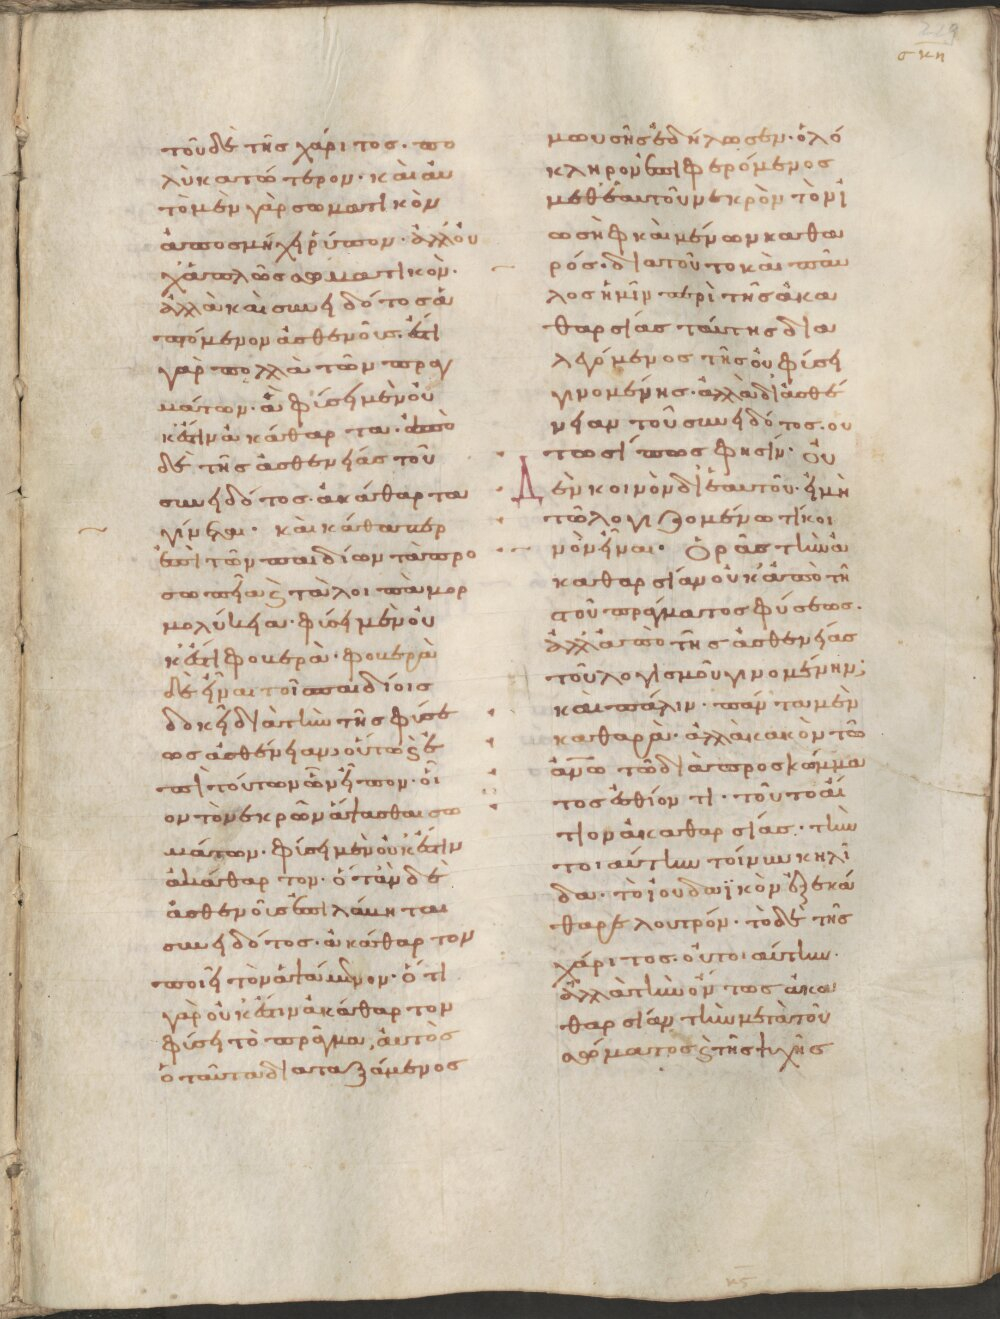 229
σκη
τοῦ δὲ τῆς χάριτος· πο
λὺ κατώτερον· καὶ αὐ
τὸ μὲν γὰρ σωματικὸν
ἀποσμήχει ῥύπον· ἀλλ' οὐ
χἁπλῶς σωματικὸν·
ἀλλὰ καὶ συνειδότος ἁ
πτόμενον ἀσθενοῦς· ἐπὶ
γὰρ πολλὰ τῶν πραγ
μάτων· ἃ φύσει μὲν οὐ
κ ἔστιν ἀκάθαρτα· ἀπὸ
δὲ τῆς ἀσθενείας τοῦ
συνειδότος· ἀκάθαρτα
γίνεται· καὶ καθάπερ
ἐπὶ τῶν παιδίων τὰ προ
σωπεῖα ϗ τὰ λοιπὰ μορ
μολύκεια· φύσει μὲν οὐ
κ ἔστι φοβερὰ· φοβερὰ
δὲ εἶναι τοῖ παιδίοις
δοκεῖ διὰ τὴν τῆς φύσε
ως ἀσθένειαν· οὕτως ἐ
πὶ τούτων ὧν εἶπον· οἷ
ον τὸ νεκρῶν ἅπτασθαι σω
μάτων· φύσει μὲν οὐκ ἔστιν
ἀκάθαρτον· ὅταν δὲ
ἀσθενοῦς ἐπιλάβηται
συνειδότος· ἀκάθαρτον
ποιεῖ τὸν ἁπτόμενον· ὅτι
γὰρ οὐκ ἔστιν ἀκάθαρτον
φύσει τὸ πρᾶγμα, αὐτὸς
ὁ ταῦτα διαταξάμενος
μωυσῆς ἐδήλωσεν· ὁλό
κληρον ἐπιφερόμενος
μεθ' ἑαυτοῦ νεκρὸν τὸν ἰ
ωσὴφ καὶ μένων καθα
ρός· διὰ τοῦτο καὶ παῦ
λος ἡμῖν περὶ τῆς ἀκα
θαρσίας ταύτης δια
λεγόμενος τῆς οὐ φύσει
γινομένης· ἀλλὰ δι' ἀσθέ
νειαν τοῦ συνειδότος· οὑ
τωσί πως φησίν· Οὐ
Δὲν κοινὸν δι' ἑαυτοῦ· εἰ μὴ
τῶ λογιζομένω τί κοι
νὸν εἶναι· Ὁρᾶς τὴν ἀ
καθαρσίαν οὐκ ἀπὸ τῆ
τοῦ πράγματος φύσεως·
ἀλλ' ἀπὸ τῆς ἀσθενείας
τοῦ λογισμοῦ γινομένην;
καὶ πάλιν· πάντα μὲν
καθαρὰ· ἀλλὰ κακὸν τῶ
ἀνῶ τῶ διὰ προσκόμμα
τος ἐσθίοντι· τοῦτο αἴ
τιον ἀκαθαρσίας· τὴν
τοιαύτην τοίνυν κηλῖ
δα· τὸ ἰουδαϊκὸν ἐξεκά
θαρε λουτρόν· τὸ δὲ τῆς
χάριτος· οὐ τοιαύτην·
ἀλλὰ τὴν ὄντως ἀκα
θαρσίαν τὴν μετὰ τοῦ
σώματος ϗ τῆς ψυχῆς
κς